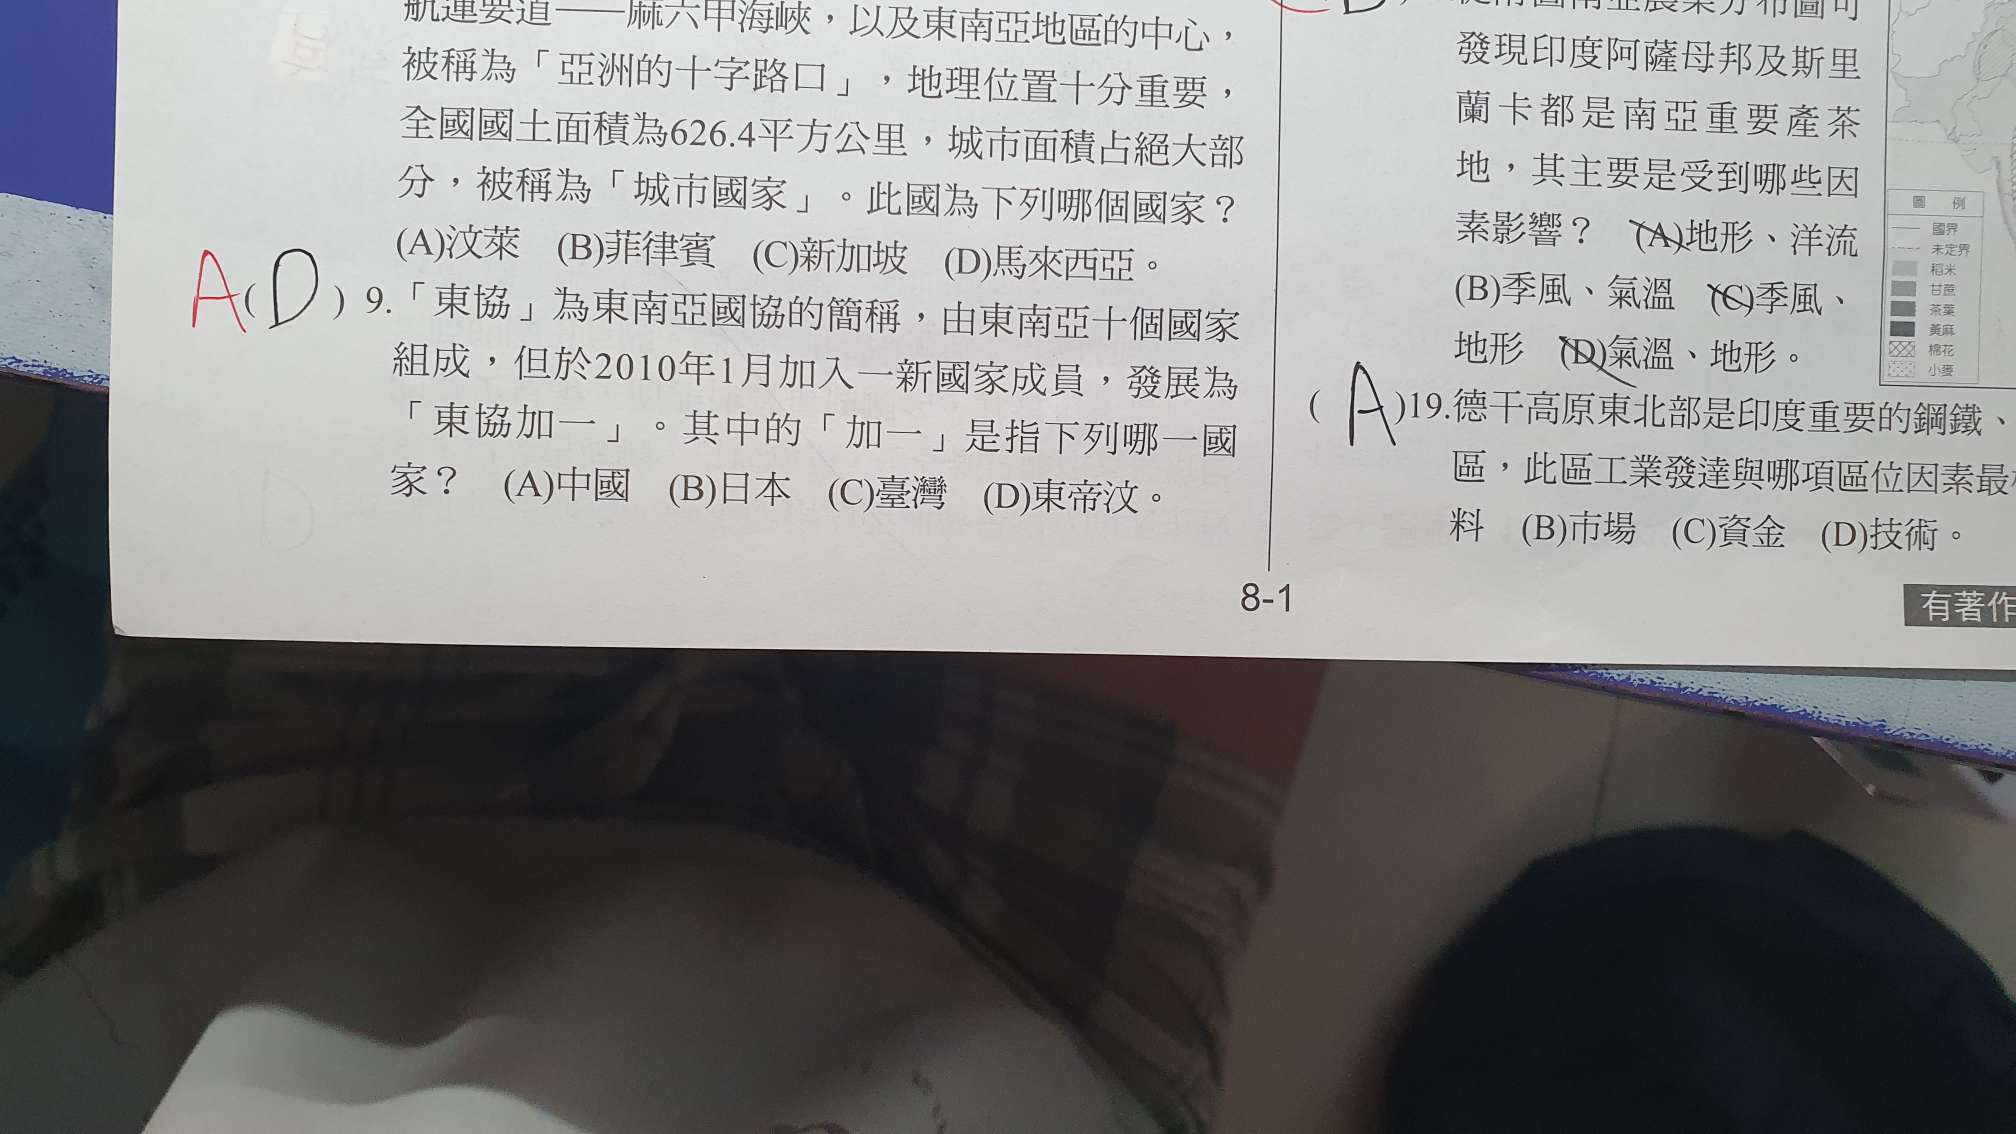 航運要道——麻六甲海峽，以及東南亞地區的中心，
被稱為「亞洲的十字路口」，地理位置十分重要，
全國國土面積為626.4平方公里，城市面積占絕大部
分，被稱為「城市國家」。此國為下列哪個國家？
(A)汶萊 (B)菲律賓 (C)新加坡 (D)馬來西亞。
A( D ) 9.「東協」為東南亞國協的簡稱，由東南亞十個國家
組成，但於2010年1月加入一新國家成員，發展為
「東協加一」。其中的「加一」是指下列哪一國
家？ (A)中國 (B)日本 (C)臺灣 (D)東帝汶。
發現印度阿薩母邦及斯里
蘭卡都是南亞重要產茶
地，其主要是受到哪些因
素影響？ (A)地形、洋流
(B)季風、氣溫 (C)季風、
地形 (D)氣溫、地形。
圖 例
國界
未定界
稻米
甘蔗
茶葉
黃麻
棉花
小麥
( A )19.德干高原東北部是印度重要的鋼鐵、
區，此區工業發達與哪項區位因素最
料 (B)市場 (C)資金 (D)技術。
8-1
有著作